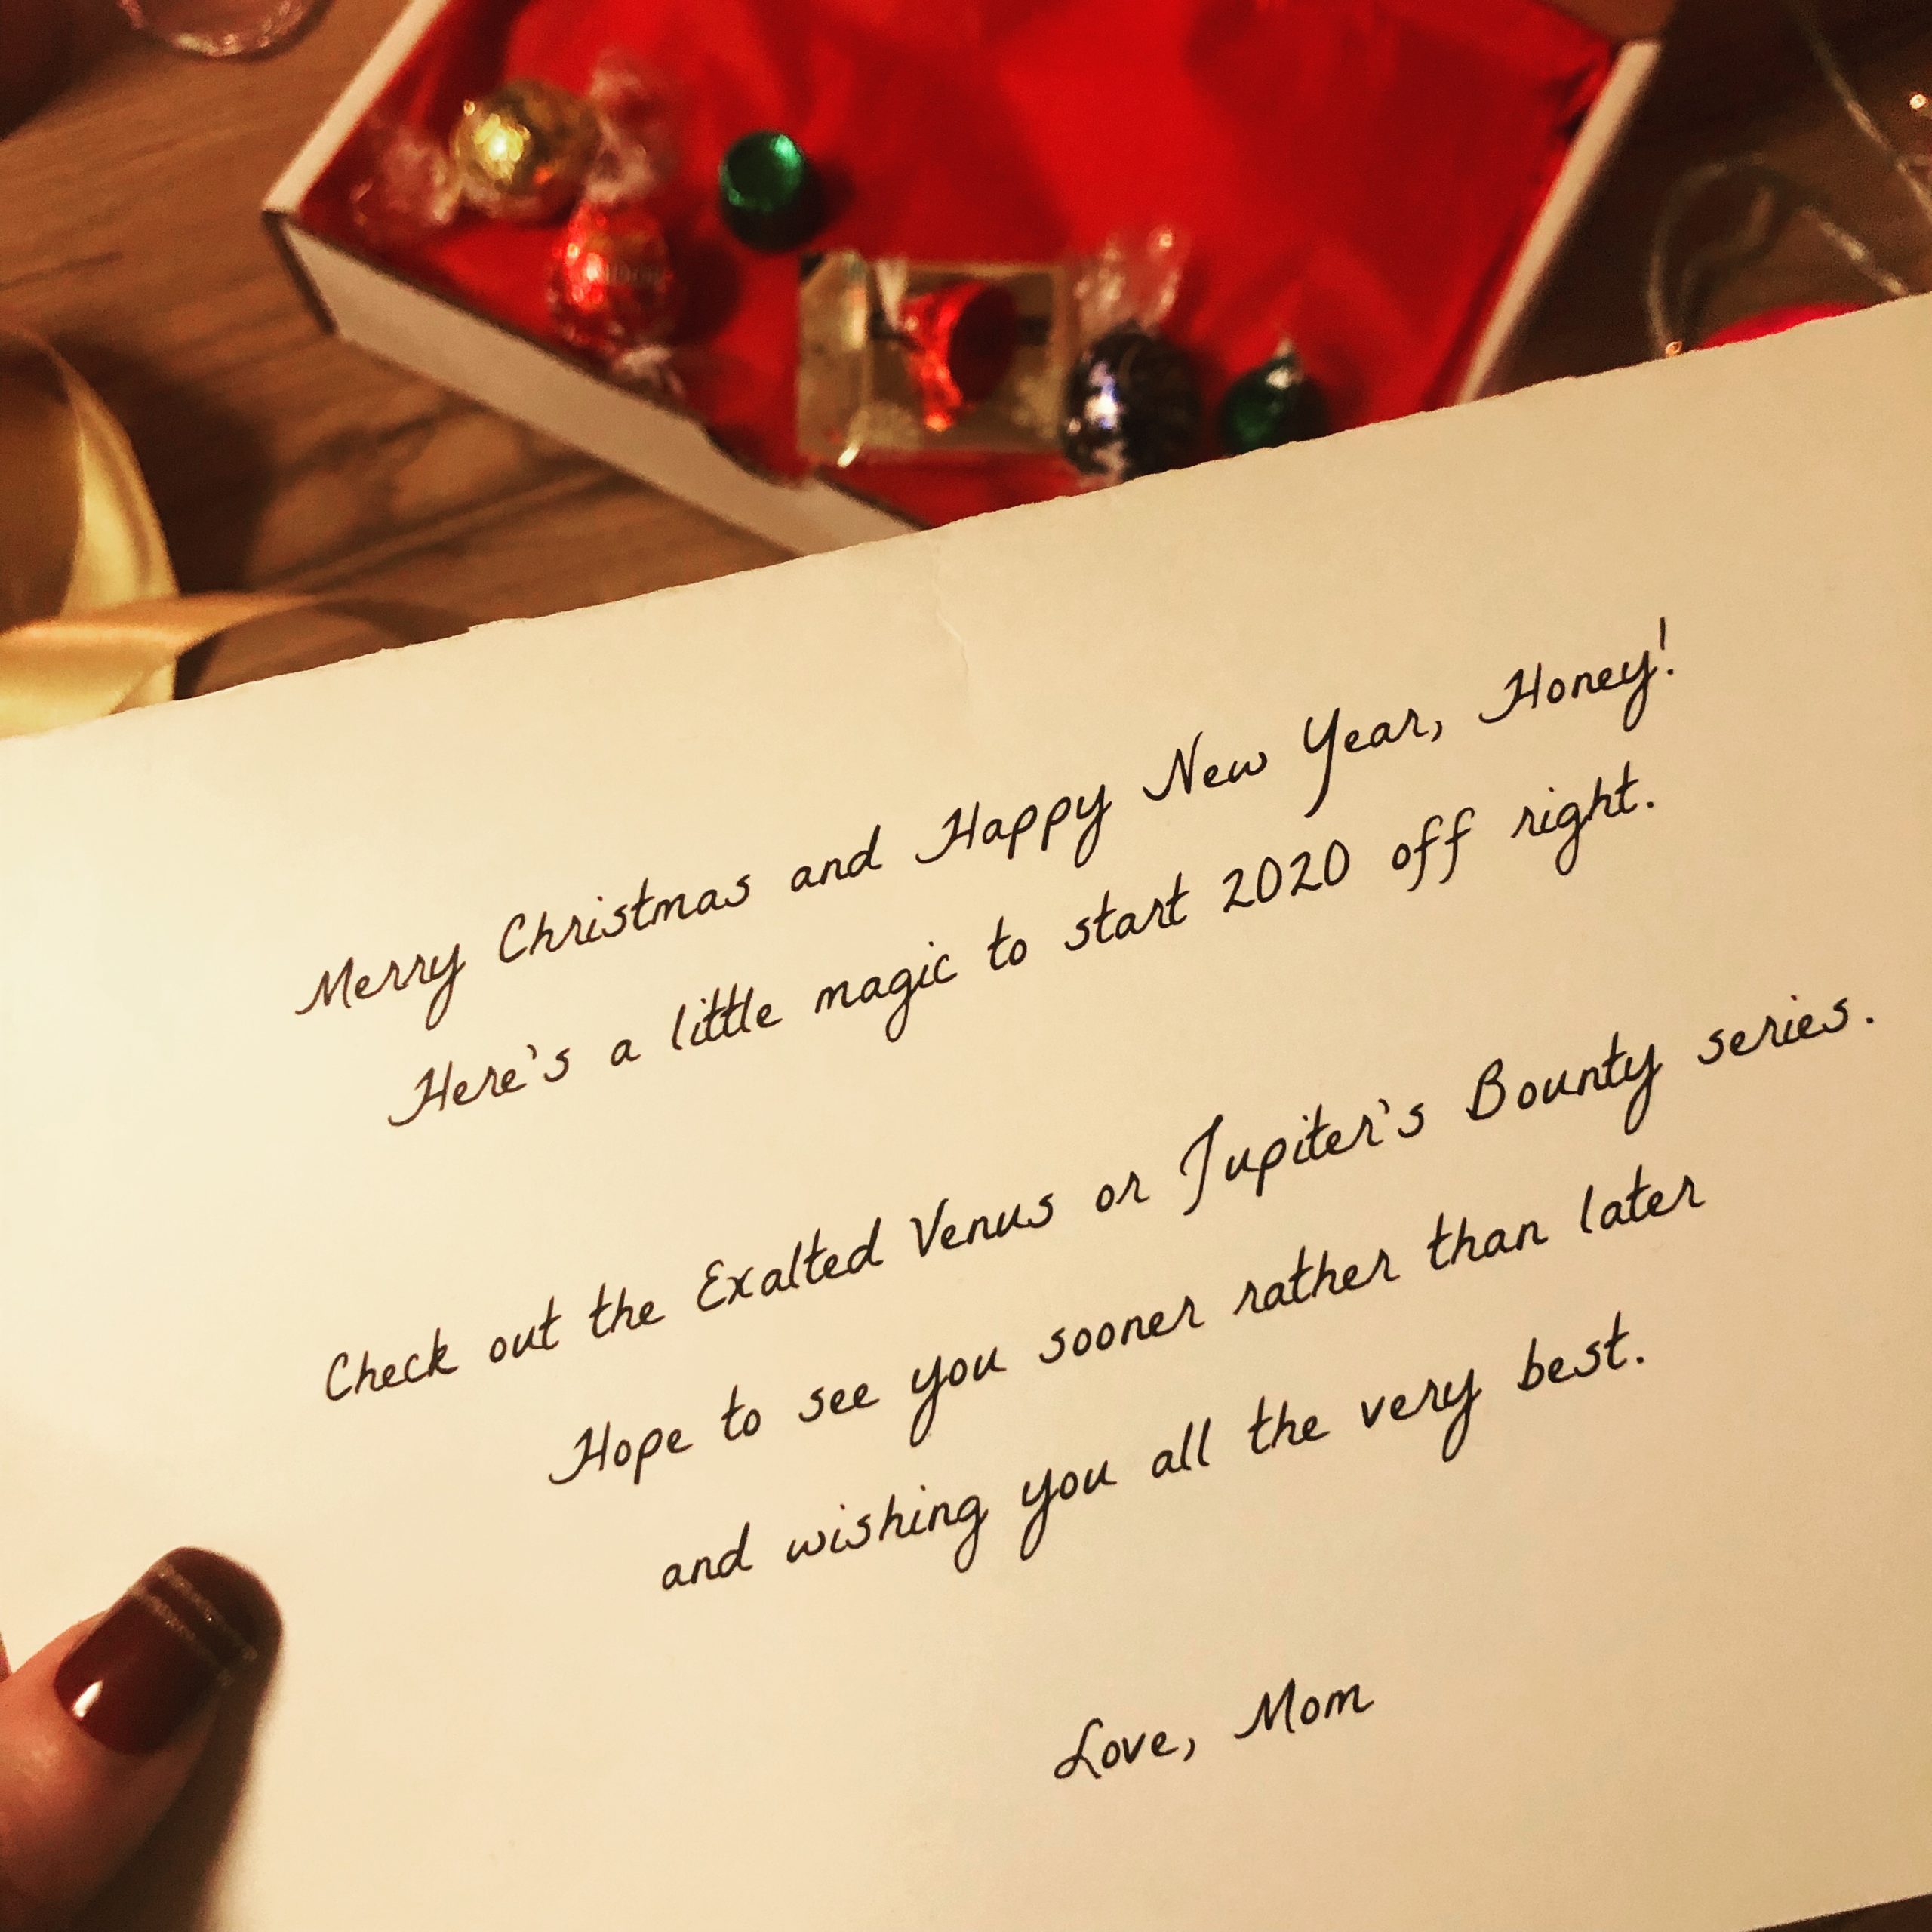 Merry Christmas and Happy New Year, Honey!
Here's a little magic to start 2020 off right.
Check out the Exalted Venus or Jupiter's Bounty series.
Hope to see you sooner rather than later
and wishing you all the very best.
Love, Mom